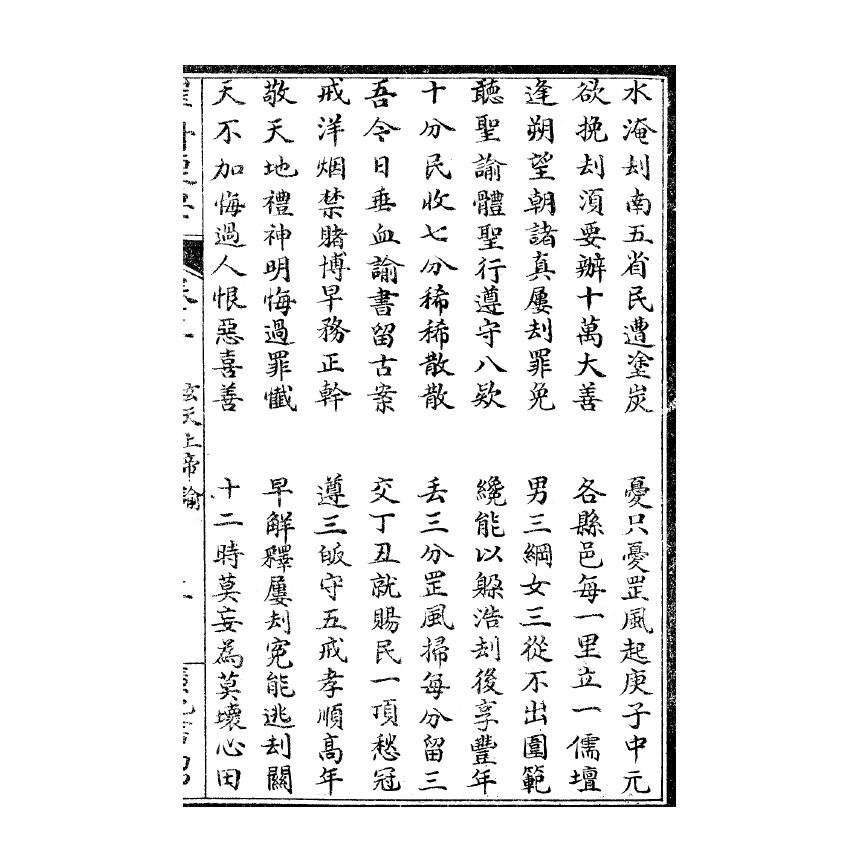 水淹刦南五省民遭塗炭　憂只憂罡風起庚子中元
欲挽刦須要辦十萬大善　各縣邑每一里立一儒壇
逢朔望朝諸真屢刦罪免　男三綱女三從不出圍範
聽聖諭體聖行遵守八欵　纔能以躱浩刦後享豐年
十分民收七分稀稀散散　丢三分罡風掃每分留三
吾今日垂血諭書留古案　交丁丑就賜民一項愁冠
戒洋烟禁賭博早務正幹　遵三皈守五戒孝順高年
敬天地禮神明悔過罪懺　早解釋屢刦寃能逃刦關
天不加悔過人恨惡喜善　十二時莫妄為莫壞心田
玄天上帝諭